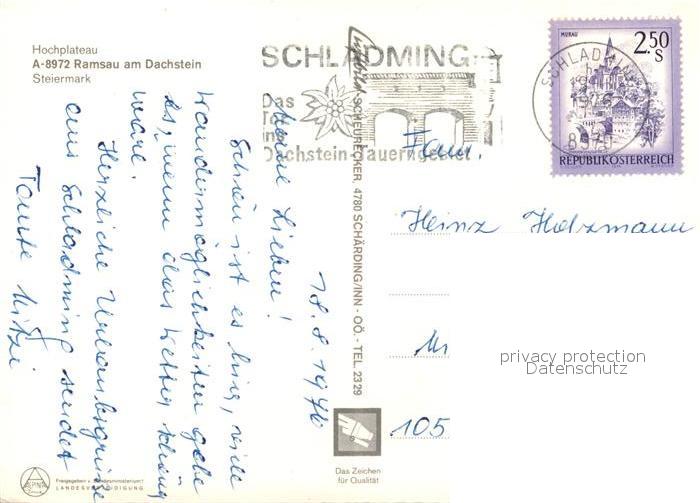 Hochplateau
A-8972 Ramsau am Dachstein
Steiermark
SCHLADMING
Das
Tor
ins
Dachstein-Tauerngebiet
SCHLADMING
1976
8970
MURAU
2.50
S
REPUBLIK ÖSTERREICH
SCHEURECKER, 4780 SCHÄRDING/INN - OÖ. - TEL. 2329
18.8.1976
Meine Lieben!
Schön ist es hier, viele
Wandermöglichkeiten gebe
es, wenn das Wetter schön
wäre.
Herzliche Urlaubsgrüsse
aus Schladming sendet
Tante Mitzi
Fam.
Heinz Holzmann
In
105
privacy protection
Datenschutz
Das Zeichen
für Qualität
Freigegeben v. Bundesministerium f.
LANDESVERTEIDIGUNG